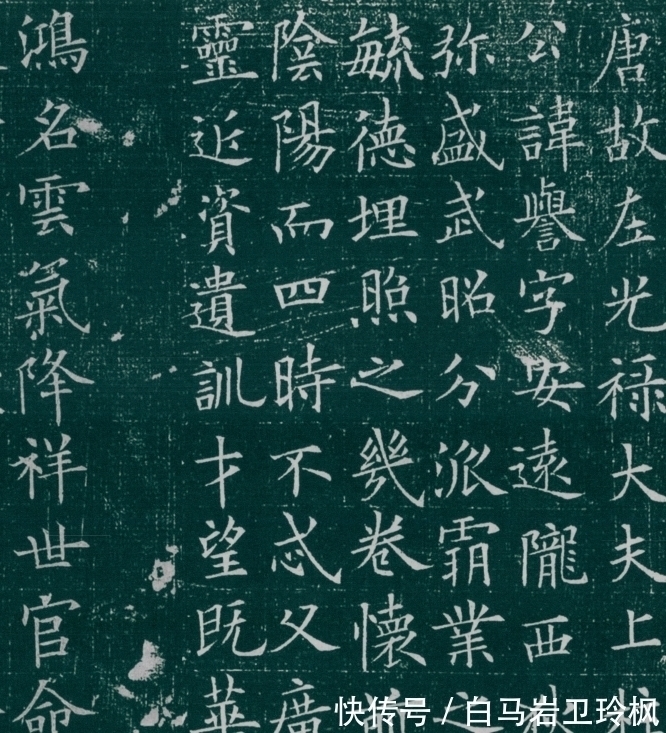 唐故左光禄大夫上
公諱譽字安遠隴西
弥盛武昭分派霸業之
毓德埋照之幾卷懷
陰陽而四時不忒父廣
靈近資遺訓才望既華
鴻名雲氣降祥世官命
快传号 / 白马岩卫玲枫